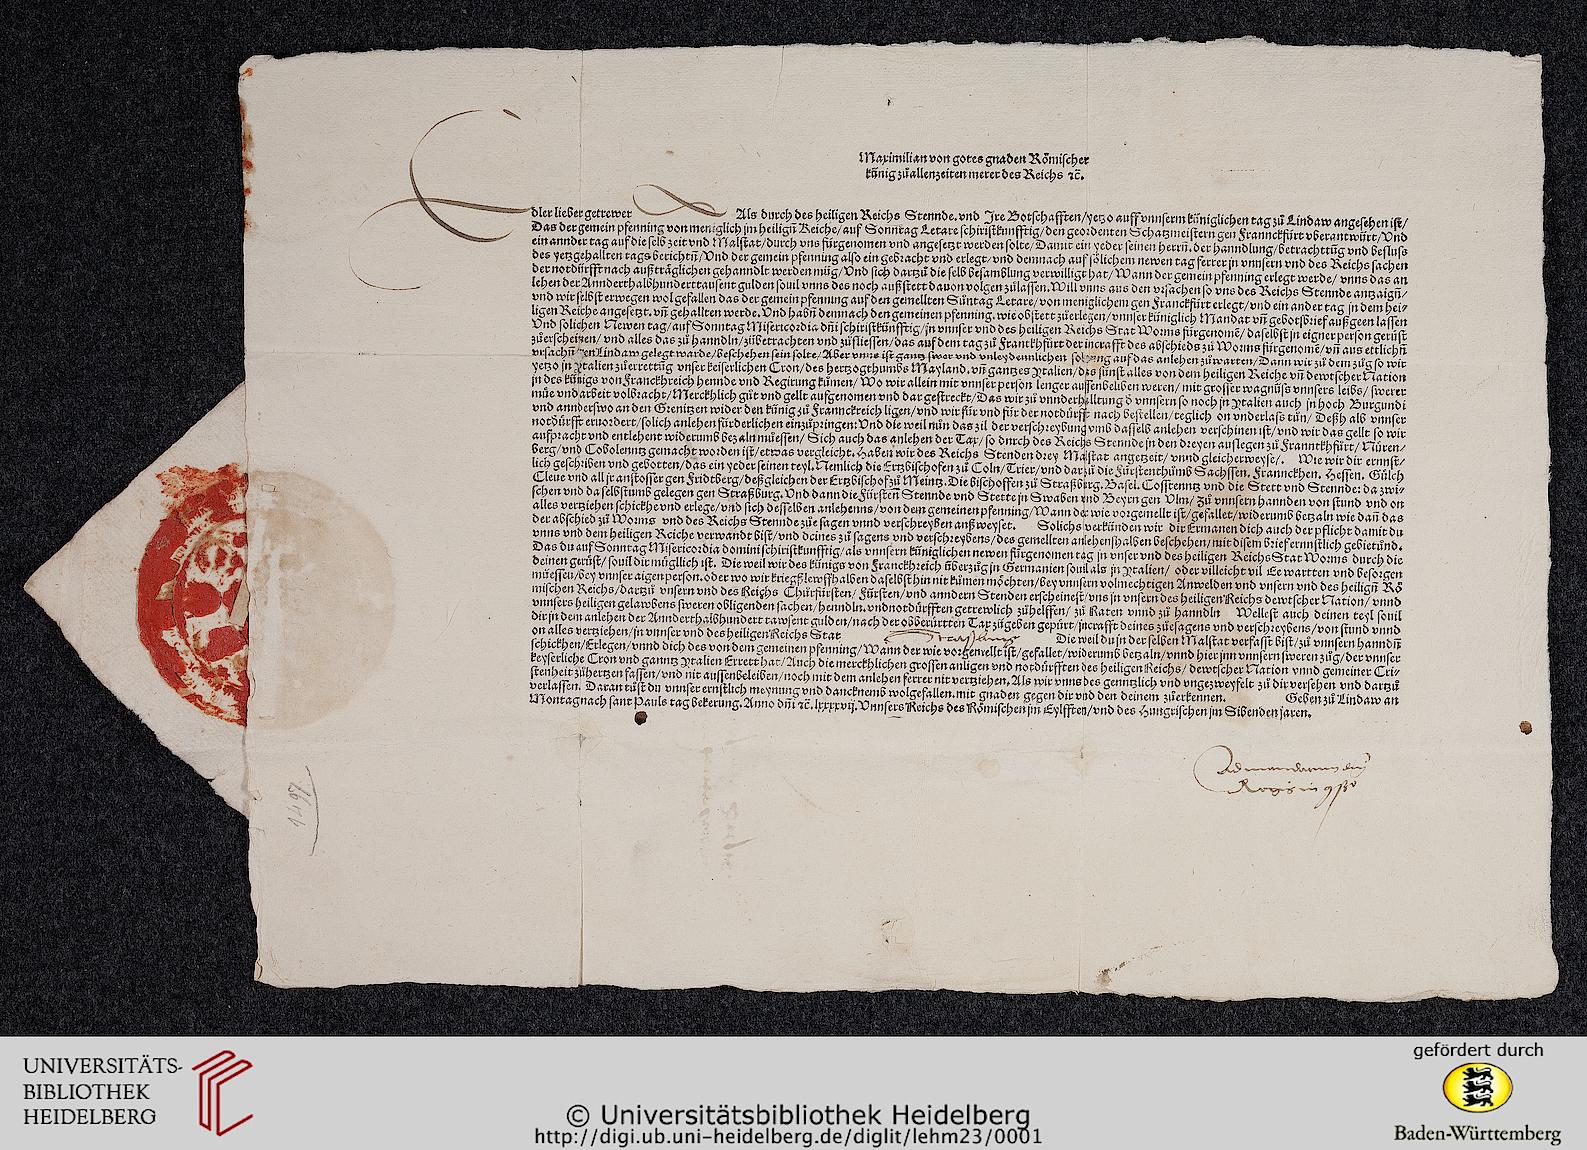 Maximilian von gotes gnaden Römischer
künig zů allenzeiten merer des Reichs ⁊c̃.
Edler lieber getrewer Als durch des heiligen Reichs Stennde. vnd Ire Botschafften/yetzo auff vnnserm küniglichen tag zů Lindaw angesehen ist/
Das der gemein pfenning von meniglich jm heiligñ Reiche/auf Sonntag Letare schiristkunfftig/den geordenten Schatzmeistern gen Franckfůrt vberantwůrt/Vnd
ein annder tag auf die selb zeit vnd Malstat/durch vns fürgenomen vnd angesetzt werden solte/Damit ein yeder seinen herrñ. der hanndlung/betrachttüg vnd besluss
des yetzgehallten tags berichtñ/Vnd der gemein pfenning also ein gebracht vnd erlegt/vnd dennach auf sölichem newen tag ferrer jn vnnsern vnd des Reichs sachen
der notdürfft nach außträglichen gehanndlt werden müg/Vnd sich dartzů die selb besamblung verwilligt hat/Wann der gemein pfenning erlegt werde/vnns das an
lehen der Annderthalbhunderttausent gulden souil vnns des noch außstett dauon volgen zůlassen. Will vnns aus den vrsachen so vns des Reichs Stennde antzaigñ/
vnd wir selbst erwegen wol gefallen das der gemein pfenning auf den gemellten Sůntag Letare/von meniglichem gen Franckfürt erlegt/vnd ein ander tag jn dem hei-
ligen Reiche angesetzt. vñ gehallten werde. Vnd habñ dennach den gemeinen pfenning. wie obstett zůerlegen/vnnser küniglich Mandat vñ gebotsbrief außgeen lassen
Vnd solichen Newen tag/auf Sonntag Misericordia dñi schiristkünfftig/jn vnnser vnd des heiligen Reichs Stat Worms fürgenomẽ/daselbst jn eigner person gerüst
zůerscheinen/vnd alles das zů hanndln/zůbetrachten vnd zůsliessen/das auf dem tag zů Franckhfürt der jncrafft des abschieds zů Worms fürgenomẽ/vñ aus ettlichñ
vrsachñ gen Lindaw gelegt warde/beschehen sein solte/Aber vnns ist gantz swer vnd vnleydennlichen solang auf das anlehen zůwarten/Dann wir zů dem züg so wir
yetzo jn Ytalien zůerrettüg vnser keiserlichen Cron/des hertzogthumbs Mayland. vñ gantzes Ytalien/das sünst alles von dem heiligen Reiche vñ dewtscher Nation
jn des künigs von Franckhreich hennde vnd Regirung kümen/Wo wir allein mit vnnser person lenger aussenbeliben weren/mit grosser wagnüss vnnsers leibs/swerer
müe vnd arbeit volbracht/Merckhlich gůt vnd gellt aufgenomen vnd dargestreckt/Das wir zů vnnderhalltung d̃ vnnsern so noch jn Ytalien auch jn hoch Burgundi
vnd annderswo an den Grenitzen wider den künig zů Frannckreich ligen/vnd wir für vnd für der notdürfft nach bestellen/teglich on vnderlass tün/Deßhalb vnnser
notdürfft eruordert/solich anlehen fürderlichen einzůpringen: Vnd die weil nün das zil der verschreybung vmb dasselb anlehen verschinen ist/vnd wir das gellt so wir
aufpracht vnd entlehent widerumb bezaln müessen/Sich auch das anlehen der Tax/so durch des Reichs Stennde jn den dreyen auslegen zů Franckhfürt/Nüren-
berg/vnd Cobolenntz gemacht worden ist/etwas vergleicht. Haben wir des Reichs Stenden drey Malstat angetzeit/vnnd gleicherweyse/. Wie wir dir ernnst-
lich geschriben vnd gebotten/das ein yeder seinen teyl. Nemlich die Ertzbischofen zů Coln/Trier/vnd dartzů die Fürstenthümb Sachssen. Franckhen. Hessen. Gülch
Cleue vnd all jr anstosser gen Fridtberg/deßgleichen der Ertzbischof zů Meintz. Die bischoffen zů Straßbürg. Basel. Cosstenntz vnd die Stett vnd Stennde: da zwi-
schen vnd daselbstumb gelegen gen Straßburg. Vnd dann die Fürsten Stennde vnd Stette jn Swaben vnd Beyrn gen Vlm/Zů vnnsern hannden von stund vnd on
alles vertziehen schickhe vnd erlege/vnd sich desselben anlehenns/von dem gemeinen pfenning/Wann der wie vorgemellt ist/gefallet/widerumb betzaln wie dañ das
der abschied zů Worms vnd des Reichs Stennde zůesagen vnnd verschreyben außweyset. Solichs verkünden wir dir Ermanen dich auch der pflicht damit du
vnns vnd dem heiligen Reiche verwandt bist/vnd deines zůsagens vnd verschreybens/des gemellten anlehenshalben beschehen/mit disem brief ernnstlich gebietünd.
Das du auf Sonntag Misericordia domini schiristkunfftig/als vnnsern küniglichen newen fürgenomen tag jn vnser vnd des heiligen Reichs Stat Worms durch die
deinen gerüst/souil dir mügllich ist. Die weil wir des künigs von Franckhreich überzüg in Germanien souil als jn Ytalien/oder villeicht vil Ee wartten vnd besorgen
müessen/bey vnnser aigen person. oder wo wir kriegßlewffhalben daselbst hin nit kümen möchten/bey vnnsern volmechtigen Anwelden vnd vnsern vnd des heiligñ Rö
mischen Reichs/dartzů vnsern vnd des Reichs Chürfürsten/Fürsten/vnd anndern Stenden erscheinest/vns jn vnsern des heiligen Reichs dewtscher Nation/vnnd
vnnsers heiligen gelawbens sweren obligenden sachen/henndln. vnd notdürfften getrewlich zůhelffen/zů Raten vnnd zů hanndln Wellest auch deinen teyl souil
dir jn dem anlehen der Annderthalbhundert tawsent gulden/nach der obberürtten Tax zůgeben gepürt/jncrafft deines zůesagens vnd verschreybens/von stund vnnd
on alles vertziehen/jn vnnser vnd des heiligen Reichs Stat Straspurg Die weil du jn der selben Malstat verfasst bist/zů vnnsern hanndñ
schickhen/Erlegen/vnnd dich des von dem gemeinen pfenning/Wann der wie vorgemellt ist/gefallet/widerumb betzaln/vnnd hier jnn vnnsern sweren züg/der vnnser
keyserliche Cron vnd ganntz Ytalien Errett hat/Auch die merckhlichen grossen anligen vnd notdürfften des heiligen Reichs/dewtscher Nation vnnd gemeiner Cri-
stenheit zůhertzen fassen/vnd nit aussenbeleiben/noch mit dem anlehen ferrer nit vertziehen. Als wir vnns des genntzlich vnd vngezweyfelt zů dir versehen vnd dartzů
verlassen. Daran tüst du vnnser ernstlich meynung vnd dancknemb wolgefallen. mit gnaden gegen dir vnd den deinem zůerkennen. Geben zů Lindaw an
Montag nach sant Pauls tag bekerung. Anno dñi ⁊c̃. lxxxxvij. Vnnsers Reichs des Römischen jm Eylfften/vnd des Hungrischen jm Sibenden jaren.
Ad mandatum dñi
Regis in
1497
UNIVERSITÄTS-
BIBLIOTHEK
HEIDELBERG
© Universitätsbibliothek Heidelberg
http://digi.ub.uni-heidelberg.de/diglit/lehm23/0001
gefördert durch
Baden-Württemberg